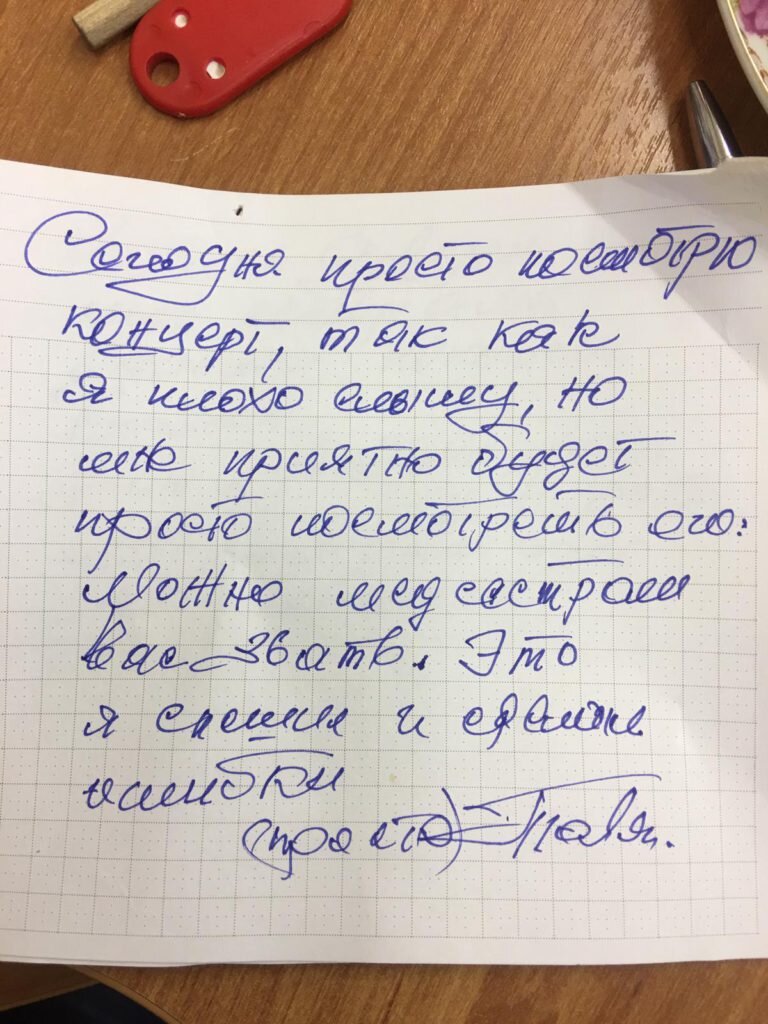 Сегодня просто посмотрю
концерт, так как
я плохо слышу, но
мне приятно будет
просто посмотреть его.
Можно медсестрам
вас звать. Это
я спешил и сделал
ошибки
(просто)